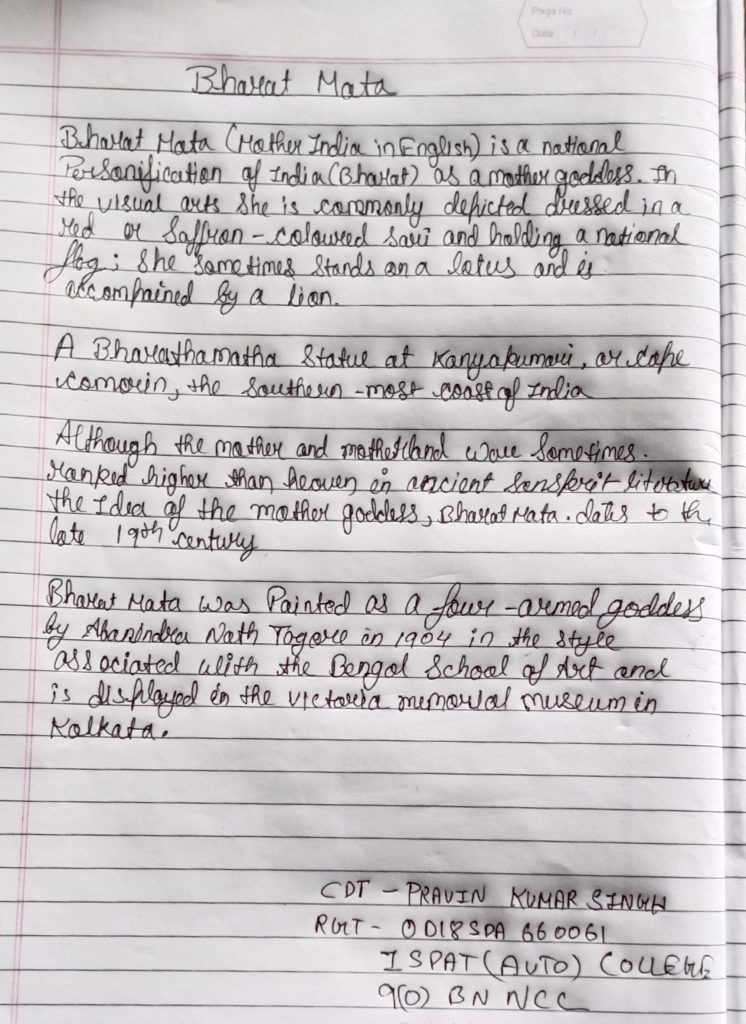 Page No
Date : / /
Bharat Mata
Bharat Mata (Mother India in English) is a national
Personification of India (Bharat) as a mother goddess. In
the visual arts She is commonly depicted dressed in a
red or Saffron-coloured sari and holding a national
flag; She Sometimes Stands on a lotus and is
accompained by a lion.
A Bharathamatha Statue at Kanyakumari, or cape
comorin, the Southern-most coast of India
Although the mother and motherland were Sometimes.
ranked higher than heaven in ancient Sanskrit literature
the Idea of the mother goddess, Bharat Mata. dates to th
late 19th century
Bharat Mata was Painted as a four-armed goddess
by Abanindra Nath Tagore in 1904 in the style
associated with the Bengal School of Art and
is displayed in the victoria memorial museum in
Kolkata.
CDT - PRAVIN KUMAR SINGH
RGT - OD18SDA 660061
ISPAT (AUTO) COLLEGE
9(O) BN NCC